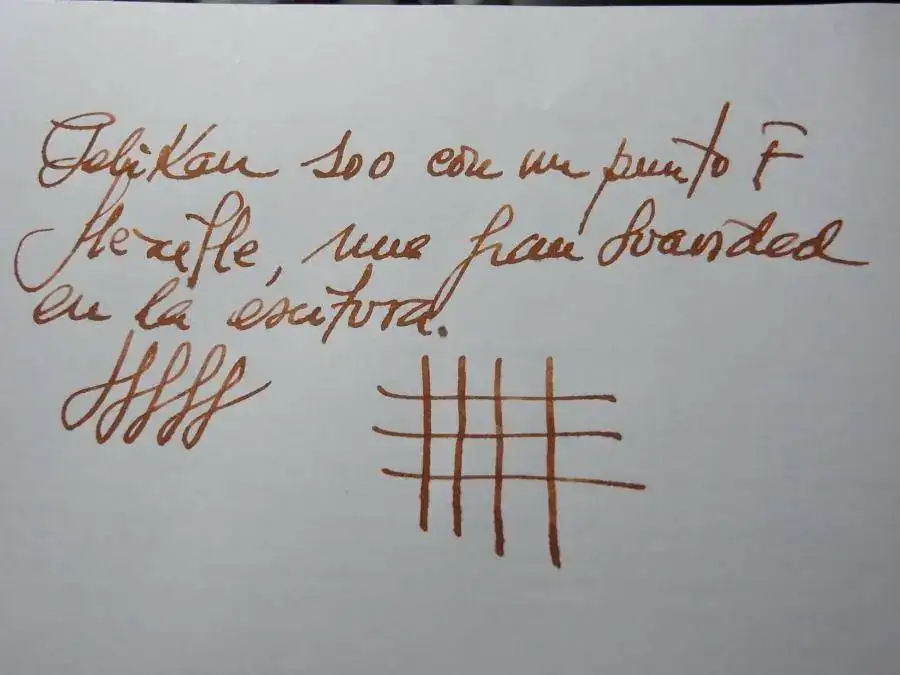 Pelikan 100 con un punto F
flexible, una gran suavidad
en la escritura.